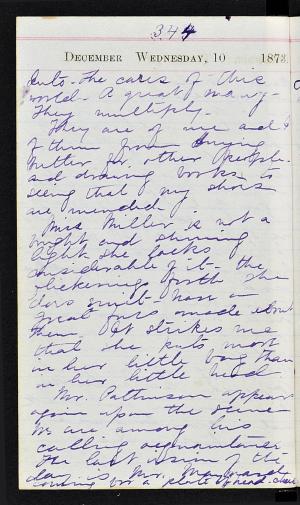 344
DECEMBER WEDNESDAY, 10 1873
into the cares of this
world. A great many.
They multiply.
They are of me and
of them from buying
butter for other people
and drawing books to
seeing that my shoes
are mended.
Miss Miller is not a
bright and shining
light she lacks
considerable of it. The
forth she
does
great made about
them. It strikes me
that she puts more
in her little bag than
in her little head
Mr. Pattinson appears
again upon the scene
We are among his
calling acquaintances.
The last vision of the
day is Mr.
coming for a plate of head-cheese